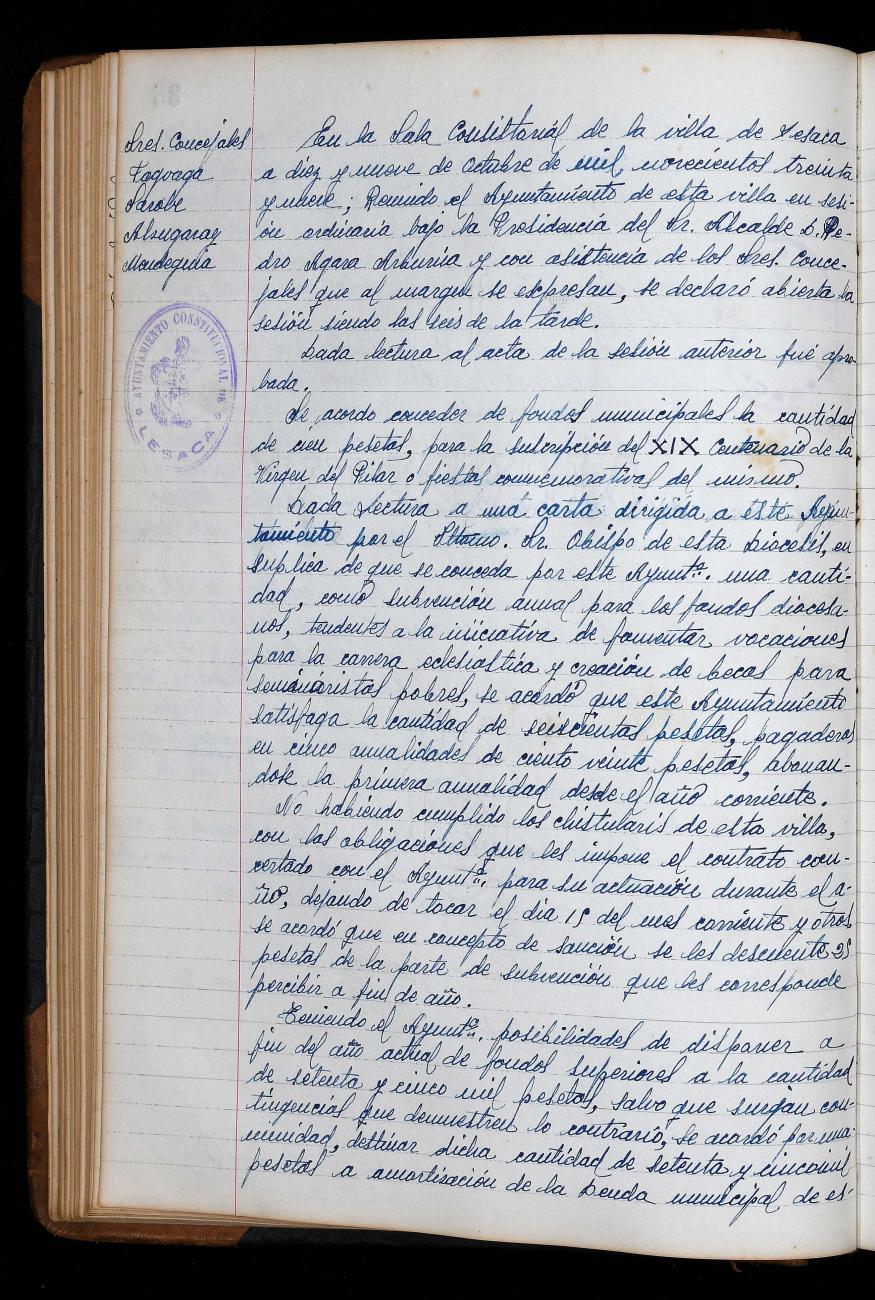 Sres. Concejales
Sarobe
Alzugaray
Mendeguia
AYUNTAMIENTO CONSTITUCIONAL DE
LESACA
En la Sala Consistorial de la villa de Lesaca
a diez y nueve de Octubre de mil novecientos treinta
y nueve; Reunido el Ayuntamiento de esta villa en sesi-
ón ordinaria bajo la Presidencia del Sr. Alcalde D. Pe-
dro Agara Arburua y con asistencia de los Sres. Conce-
jales que al margen se expresan, se declaró abierta la
sesión siendo las seis de la tarde.
Dada lectura al acta de la sesión anterior fué apro-
bada.
Se acordo conceder de fondos municipales la cantidad
de cien pesetas, para la subscripción del XIX Centenario de la
Virgen del Pilar o fiestas conmemorativas del mismo.
Dada lectura a una carta dirigida a este Ayun-
tamiento por el Iltmo. Sr. Obispo de esta Diocesis, en
suplica de que se conceda por este Ayuntº. una canti-
dad, como subvención anual para los fondos diocesa-
nos, tendentes a la iniciativa de fomentar vocaciones
para la carrera eclesiástica y creación de becas para
seminaristas pobres, se acordó que este Ayuntamiento
satisfaga la cantidad de seiscientas pesetas, pagaderas
en cinco anualidades de ciento veinte pesetas, abonan-
dose la primera anualidad desde el año corriente.
No habiendo cumplido los chistularis de esta villa,
con las obligaciones que les impone el contrato con-
certado con el Ayuntº. para su actuación durante el a-
ño, dejando de tocar el dia 15 del mes corriente y otros,
se acordó que en concepto de sanción se les descuente 25
pesetas de la parte de subvención que les corresponde
percibir a fin de año.
Teniendo el Ayuntº. posibilidades de disponer a
fin del año actual de fondos superiores a la cantidad
de setenta y cinco mil pesetas, salvo que surgan con-
tingencias que demuestren lo contrario, se acordó por una-
nimidad, destinar dicha cantidad de setenta y cincomil
pesetas a amortización de la Deuda municipal de es-